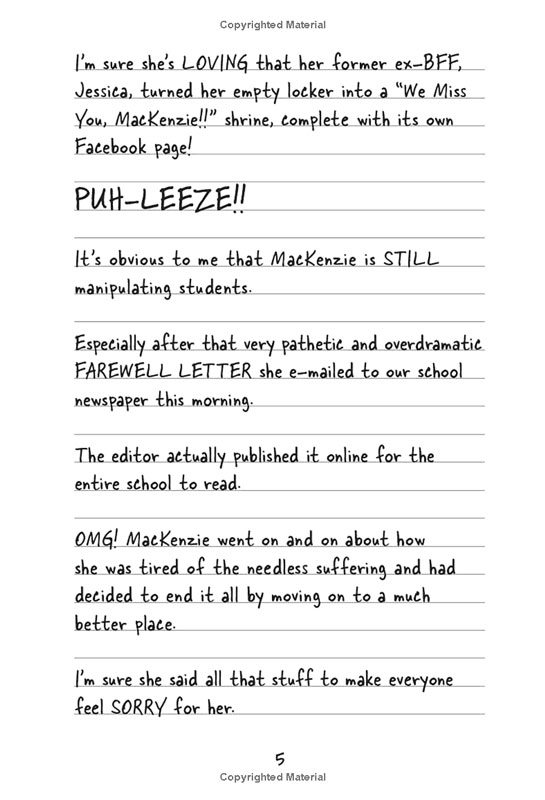 Copyrighted Material
I'm sure she's LOVING that her former ex-BFF,
Jessica, turned her empty locker into a "We Miss
You, MacKenzie!!" shrine, complete with its own
Facebook page!
PUH-LEEZE!!
It's obvious to me that MacKenzie is STILL
manipulating students.
Especially after that very pathetic and overdramatic
FAREWELL LETTER she e-mailed to our school
newspaper this morning.
The editor actually published it online for the
entire school to read.
OMG! MacKenzie went on and on about how
she was tired of the needless suffering and had
decided to end it all by moving on to a much
better place.
I'm sure she said all that stuff to make everyone
feel SORRY for her.
5
Copyrighted Material